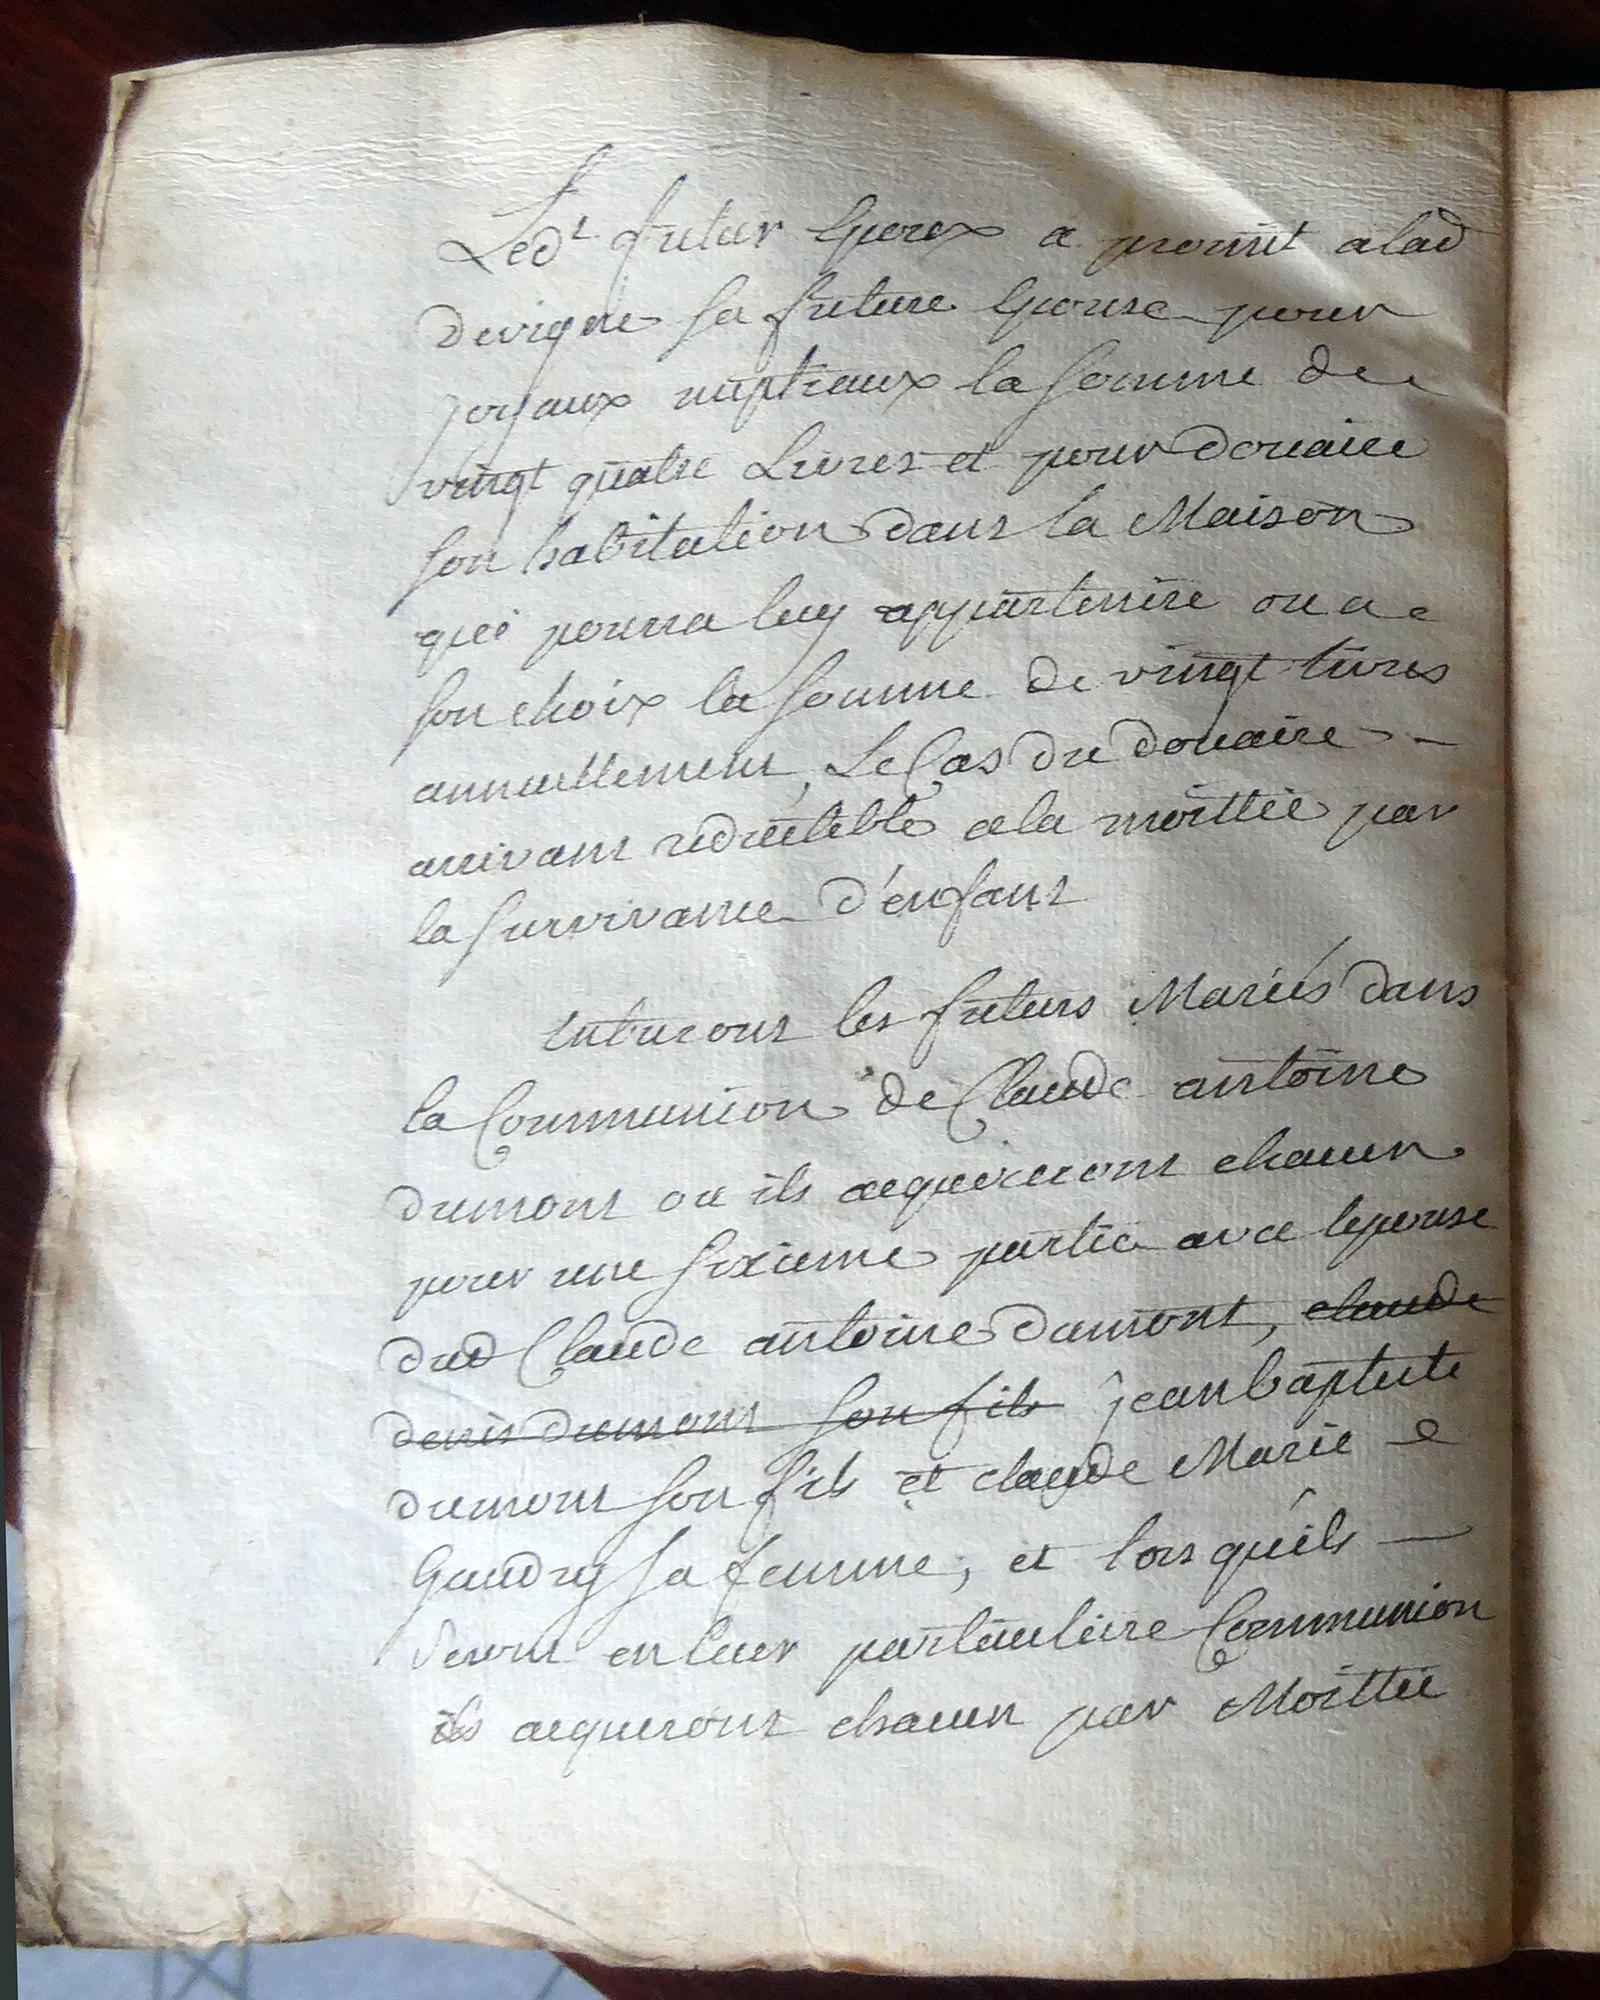 Ledt futur Epoux a promit a lad
devigne sa future Epouse pour
joyaux nuptiaux la somme de
vingt quatre Livres et pour douaire
son habitation dans la Maison
qui pourra luy appartenire ou a
son choix la somme de vingt livres
annuellement, Le Cas du douaire
arrivant reductible a la moittié par
la survivance d'enfans
Entreront les futurs Mariés dans
la Communion de Claude antoine
dumont ou ils acqueireront chacun
pour une sixieme partie avec lepouse
dud Claude antoine dumont, claude
denis dumont son fils jean baptiste
dumont son fils et claude Marie
Gaudry sa femme, et lors qu'ils
seront en leur particuliere Communion
ils acqueront chacun par Moittié